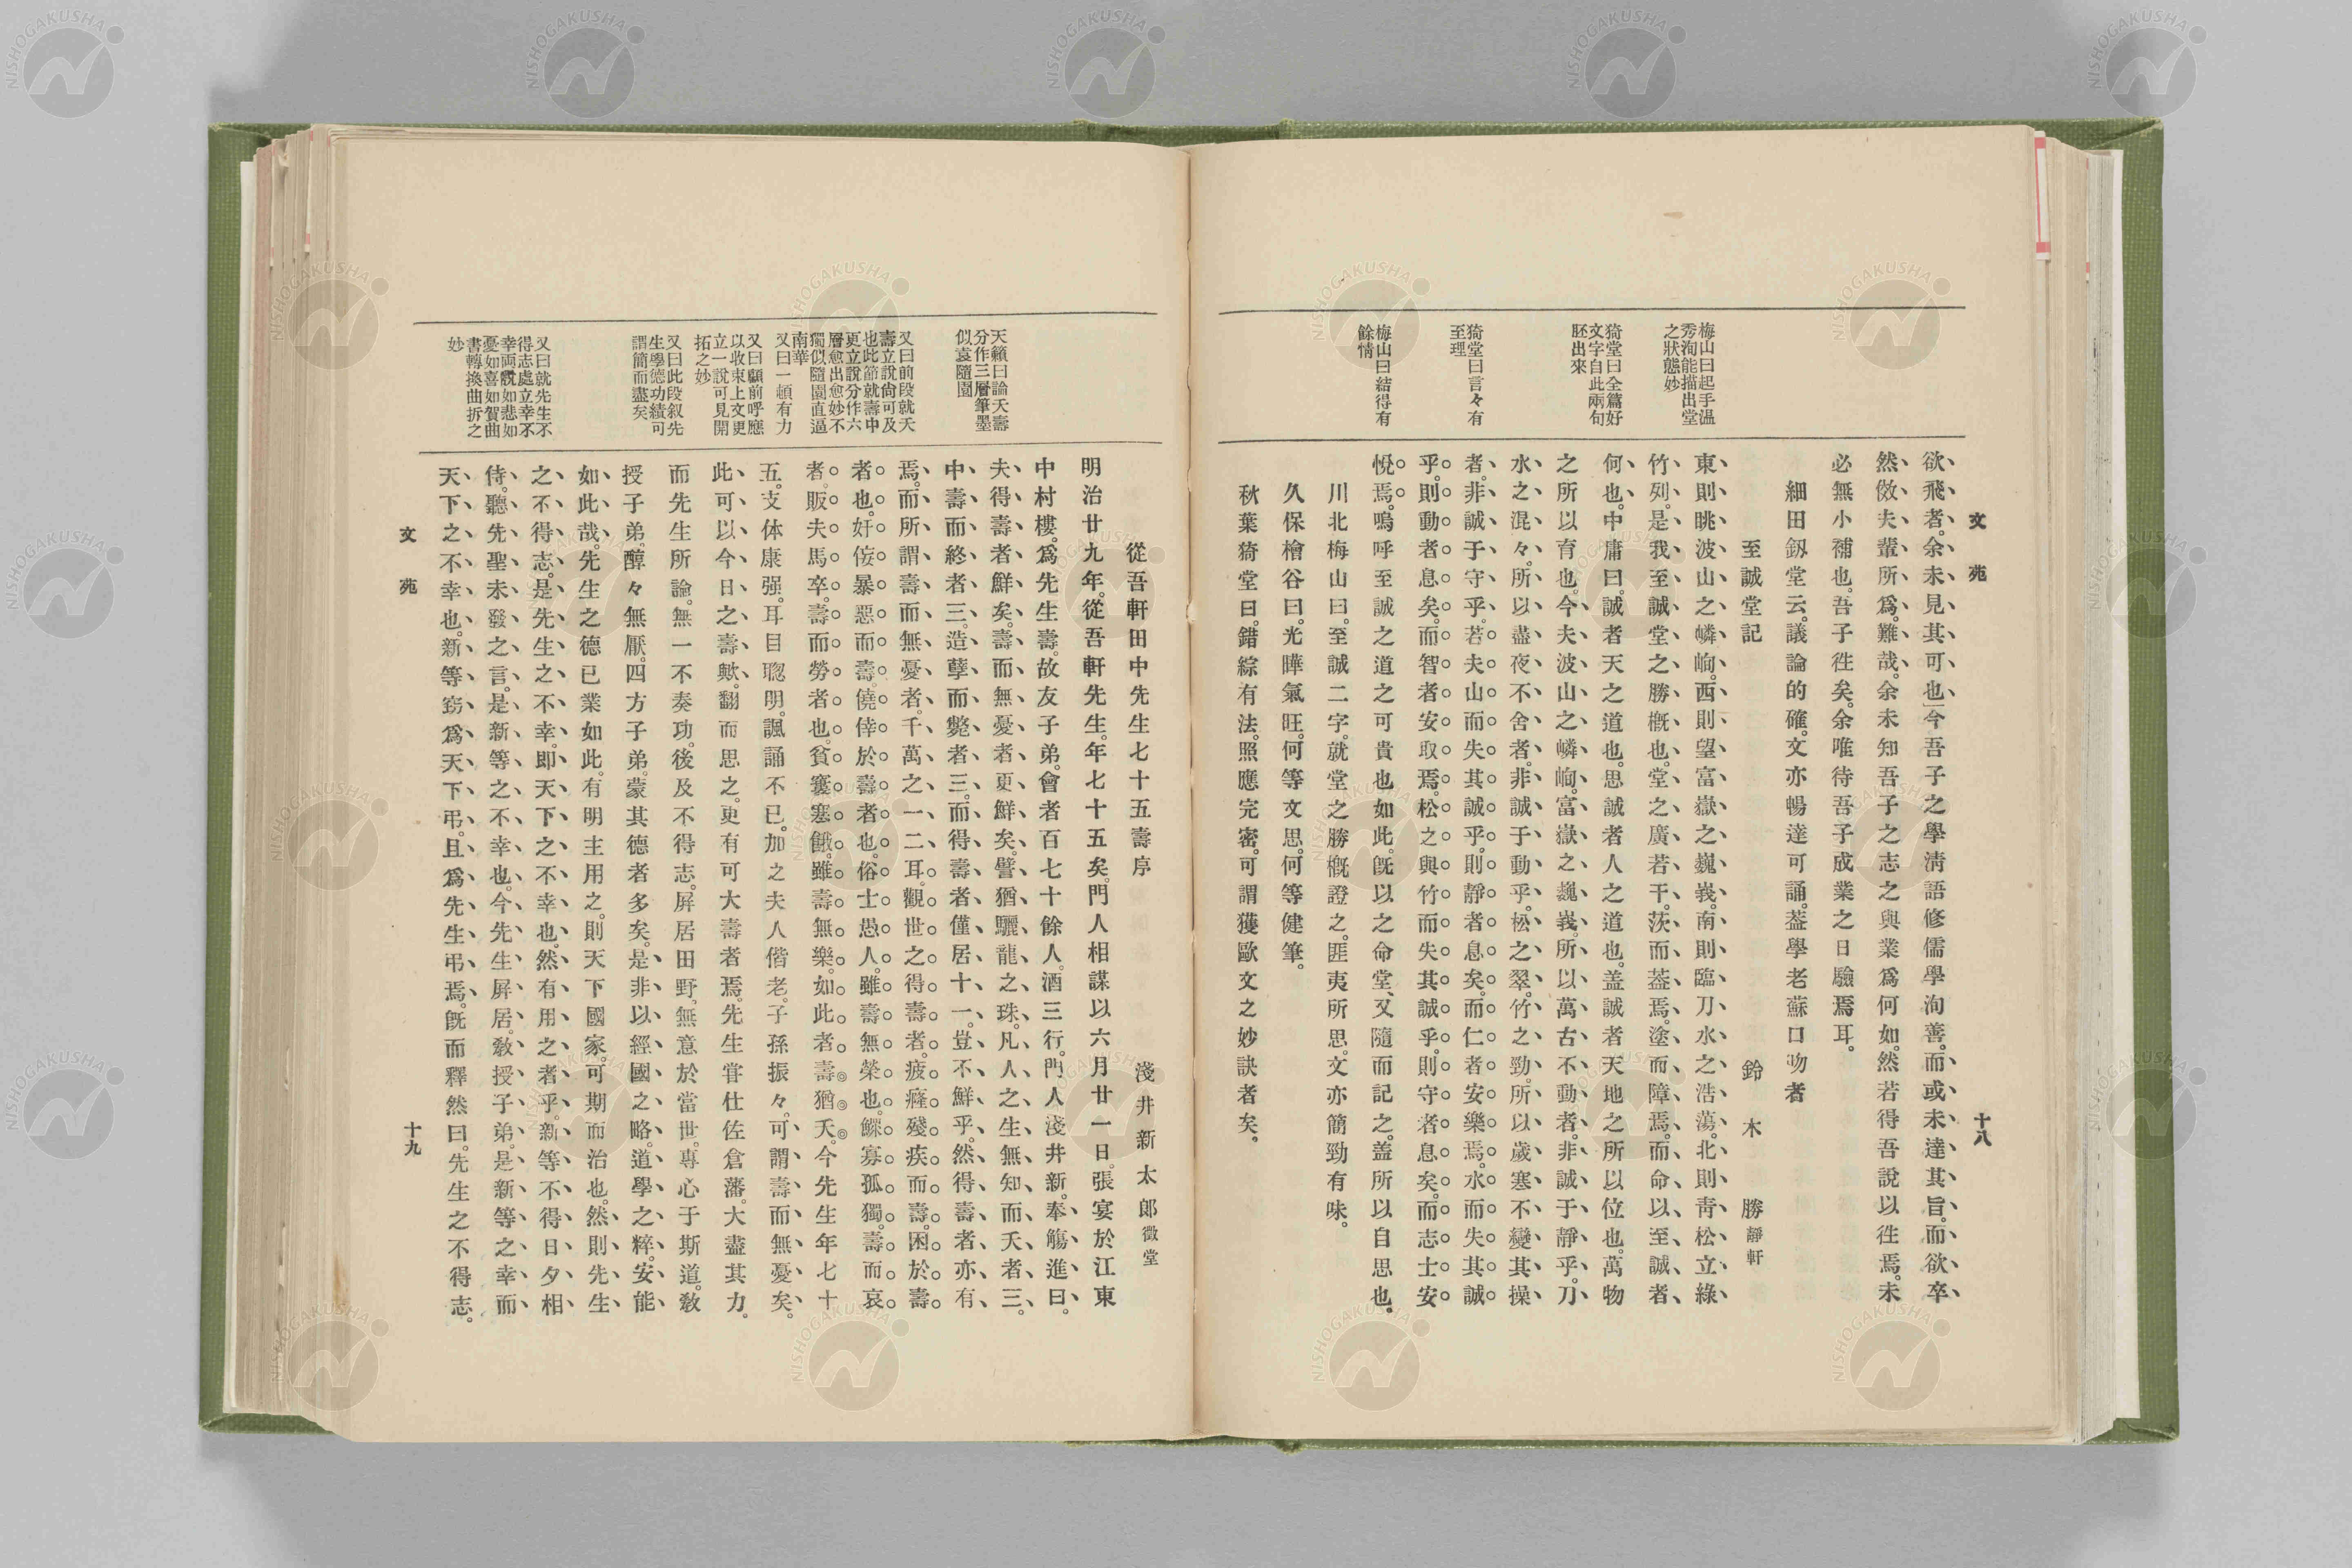 文苑
十八
欲飛者。余未見其可也。今吾子之學淸語修儒學洵善。而或未達其旨。而欲卒
然傚夫輩所爲。難哉。余未知吾子之志之與業爲何如。然若得吾說以徃焉。未
必無小補也。吾子徃矣。余唯待吾子成業之日驗焉耳。
細田釼堂云。議論的確。文亦暢達可誦。葢學老蘇口吻者
至誠堂記
鈴木勝靜軒
東則眺波山之嶙峋。西則望富嶽之巍峩。南則臨刀水之浩蕩。北則靑松立綠
竹列。是我至誠堂之勝槪也。堂之廣若干。茨而葢焉。塗而障焉。而命以至誠者
何也。中庸曰。誠者天之道也。思誠者人之道也。盖誠者天地之所以位也。萬物
之所以育也。今夫波山之嶙峋。富嶽之巍峩。所以萬古不動者。非誠于靜乎。刀
水之混々。所以盡夜不舍者。非誠于動乎。松之翠。竹之勁。所以歲寒不變其操
者。非誠于守乎。若夫山而失其誠乎。則靜者息矣。而仁者安樂焉。水而失其誠
乎。則動者息矣。而智者安取焉。松之與竹而失其誠乎。則守者息矣。而志士安
悅焉。嗚呼至誠之道之可貴也如此。旣以之命堂、又隨而記之。盖所以自思也。
川北梅山曰。至誠二字。就堂之勝槪證之。匪夷所思。文亦簡勁有味。
久保檜谷曰。光曄氣旺。何等文思。何等健筆。
秋葉猗堂曰。錯綜有法。照應完密。可謂獲歐文之妙訣者矣。
梅山曰起手温
秀洵能描出堂
之狀態妙
猗堂曰全篇好
文字自此兩句
胚出來
猗堂曰言々有
至理
梅山曰結得有
餘情
從吾軒田中先生七十五壽序
淺井新太郞徵堂
明治廿九年。從吾軒先生。年七十五矣。門人相謀以六月廿一日。張宴於江東
中村樓。爲先生壽。故友子弟。會者百七十餘人。酒三行。門人淺井新。奉觴進曰。
夫得壽者鮮矣。壽而無憂者更鮮矣。譬猶驪龍之珠。凡人之生無知而夭者三。
中壽而終者三。造孽而斃者三。而得壽者僅居十一。豈不鮮乎。然得壽者亦有
焉。而所謂壽而無憂者。千萬之一二耳。觀世之得壽者。疲癃殘疾而壽。困於壽
者也。奸佞暴惡而壽。僥倖於壽者也。俗士愚人。雖壽無榮也。鰥寡孤獨。壽而哀
者。販夫馬卒。壽而勞者也。貧窶塞餓。雖壽無樂。如此者。壽猶夭。今先生年七十
五。支体康强。耳目聰明。諷誦不已。加之夫人偕老。子孫振々。可謂壽而無憂矣。
此可以今日之壽歟。翻而思之。更有可大壽者焉。先生甞仕佐倉藩。大盡其力。
而先生所論。無一不奏功。後及不得志。屛居田野、無意於當世。專心于斯道。敎
授子弟。醇々無厭。四方子弟。蒙其德者多矣。是非以經國之略。道學之粹。安能
如此哉。先生之德已業如此。有明主用之。則天下國家。可期而治也。然則先生
之不得志。是先生之不幸。卽天下之不幸也。然有用之者乎。新等不得日夕相
侍。聽先聖未發之言。是新等之不幸也。今先生屛居。敎授子弟。是新等之幸而
天下之不幸也。新等窈爲天下弔。且爲先生弔焉。旣而釋然曰。先生之不得志。
天籟曰論夭壽
分作三層筆墨
似袁隨園
又曰前段就夭
壽立說尙可及
也此節就壽中
更立說分作六
層愈出愈妙不
獨似隨園直逼
南華
又曰一頓有力
又曰顧前呼應
以收束上文更
立一說可見開
拓之妙
又曰此段叙先
生學德功績可
謂簡而盡矣
又曰就先生不
得志處立幸不
幸兩說如悲如
憂如喜如賀曲
書轉換曲折之
妙
文苑
十九
NISHOGAKUSHA